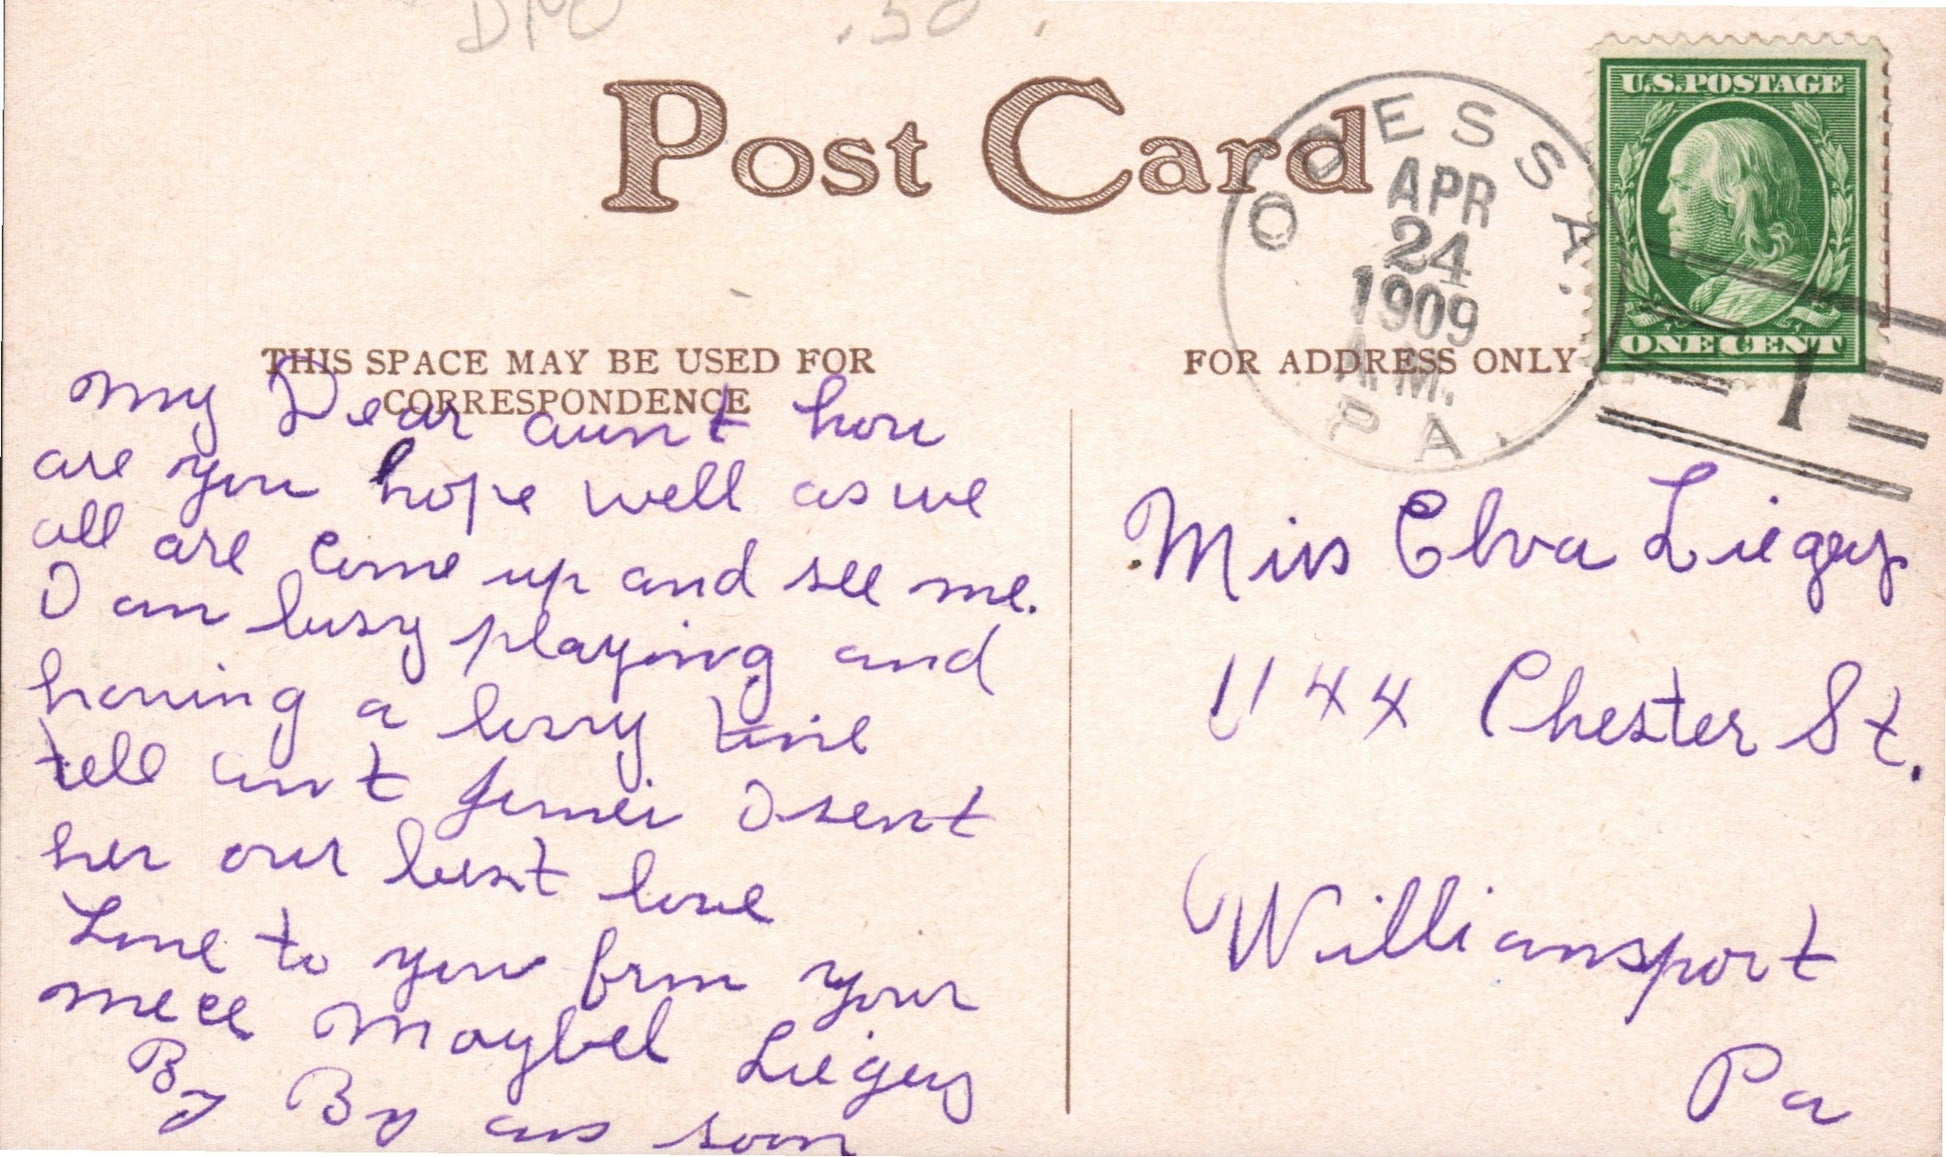 DPO .50.
Post Card
ODESSA.
APR
24
1909
A.M.
PA.
U.S.POSTAGE
ONE CENT
1
THIS SPACE MAY BE USED FOR
CORRESPONDENCE
FOR ADDRESS ONLY
My Dear aunt how
are you hope well as we
all are come up and see me.
I am busy playing and
having a busy time
tell aunt I sent
her our best love
Love to you from your
niece Maybel Liegey
By By ans soon
Miss Elva Liegey
1144 Chester St.
Williamsport
Pa